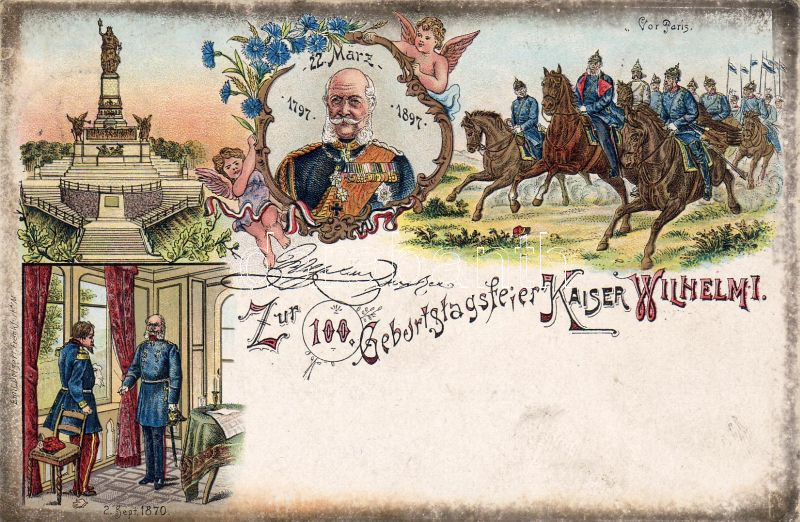 22. März.
1797.
1897.
Vor Paris.
Wilhelm
Zur 100. Geburtstagsfeier Kaiser Wilhelm I.
2. Sept 1870.